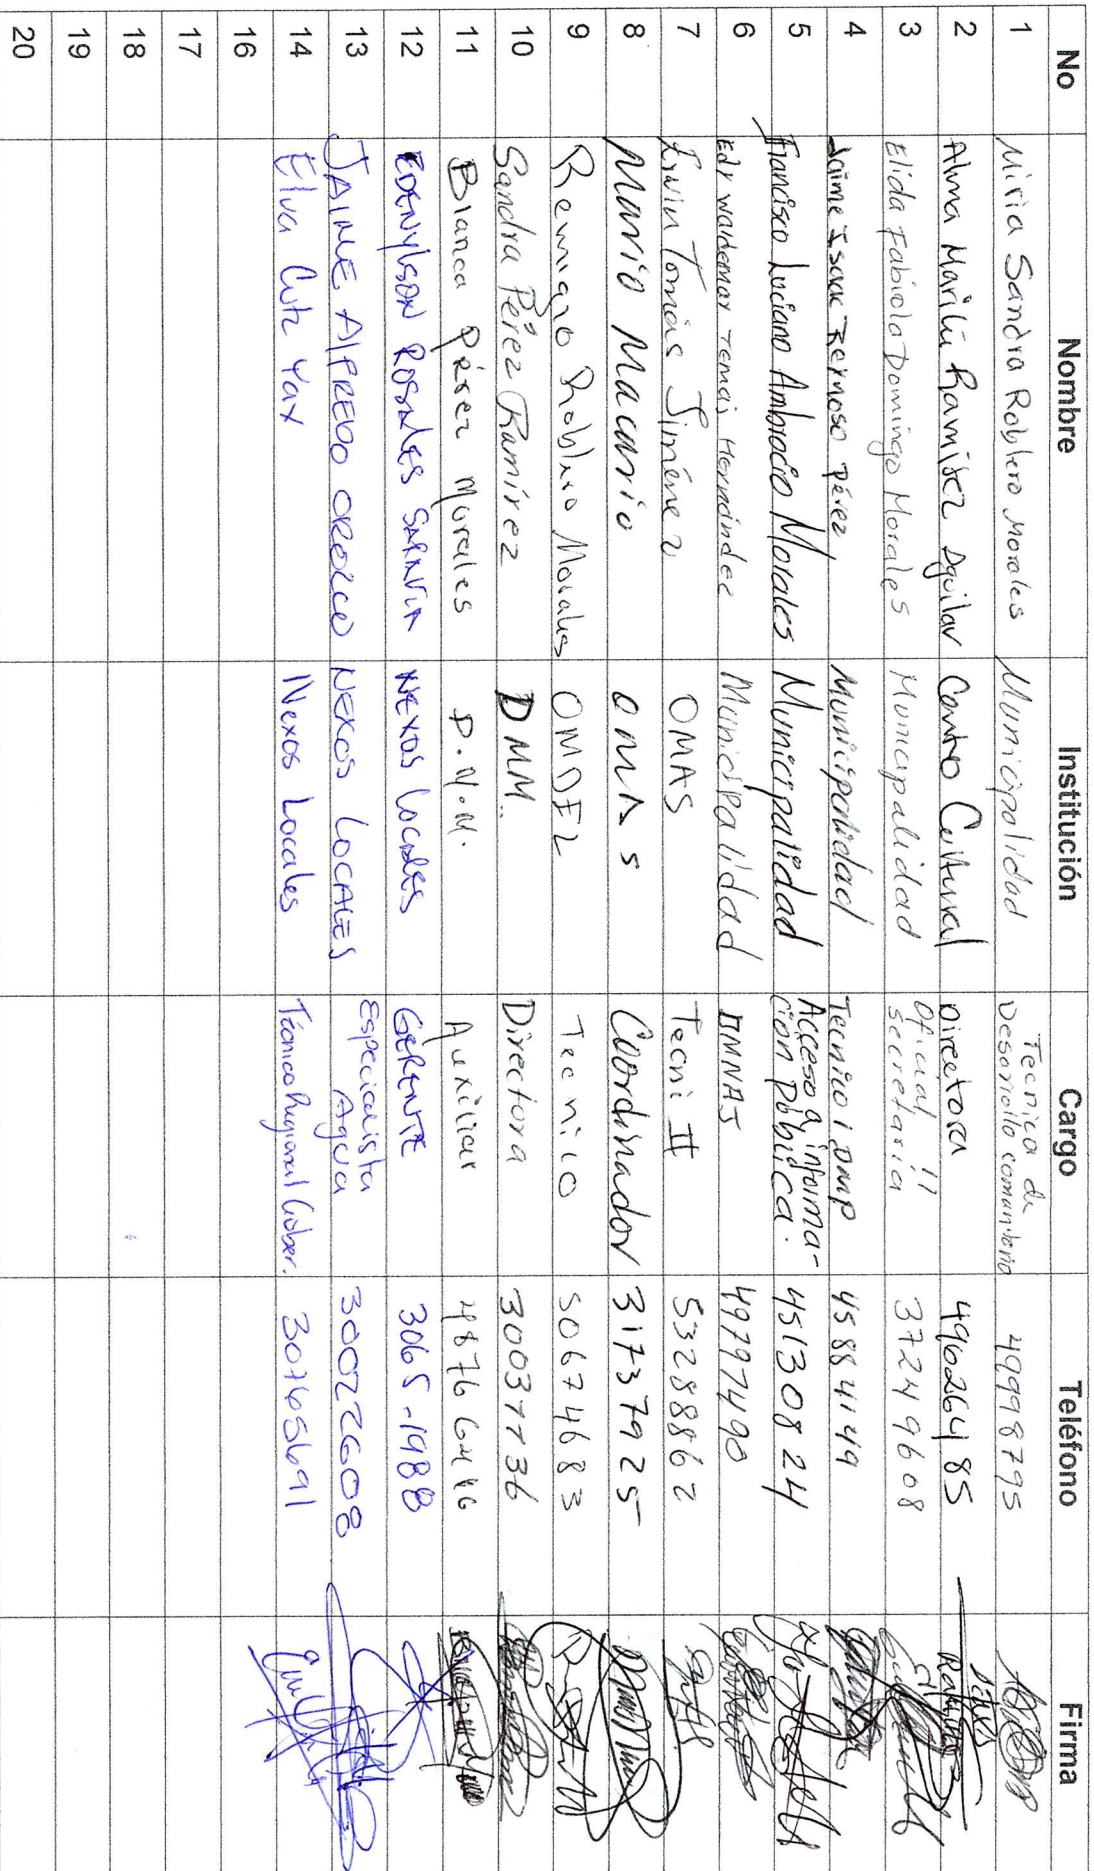 No Nombre Institución Cargo Teléfono Firma
1 Miria Sandra Roblero Morales Municipalidad Tecnica de Desarrollo comunitario 49998795
2 Alma Marilú Ramírez Aguilar Centro Cultural Directora 496264185
3 Elida Fabiola Domingo Morales Municipalidad Oficial II secretaria 37249608
4 Jaime Isaac Reynoso Pérez Municipalidad Tecnico I DMP 45884149
5 Francisco Luciano Ambrocio Morales Municipalidad Acceso a informa-
ción Pública. 45130824
6 Edy Waldemar Temaj Hernández Municipalidad DMNAJ 49797490
7 Erwin Tomás Jiménez OMAS Tecni II 53288862
8 Mario Macario OMAS Coordinador 31737925
9 Remigio Roblero Morales OMDEL Tecnico 50674683
10 Sandra Pérez Ramírez DMM. Directora 30037736
11 Blanca Pérez Morales D.M.M. Auxiliar
12 EDENYLSON ROSALES SARAVIA NEXOS LOCALES GERENTE 3065-1988
13 JAIME ALFREDO OROZCO NEXOS LOCALES Especialista Agua 30022608
14 Elva Cutz Yax Nexos Locales Técnico Regional Gober. 30765691
16
17
18
19
20